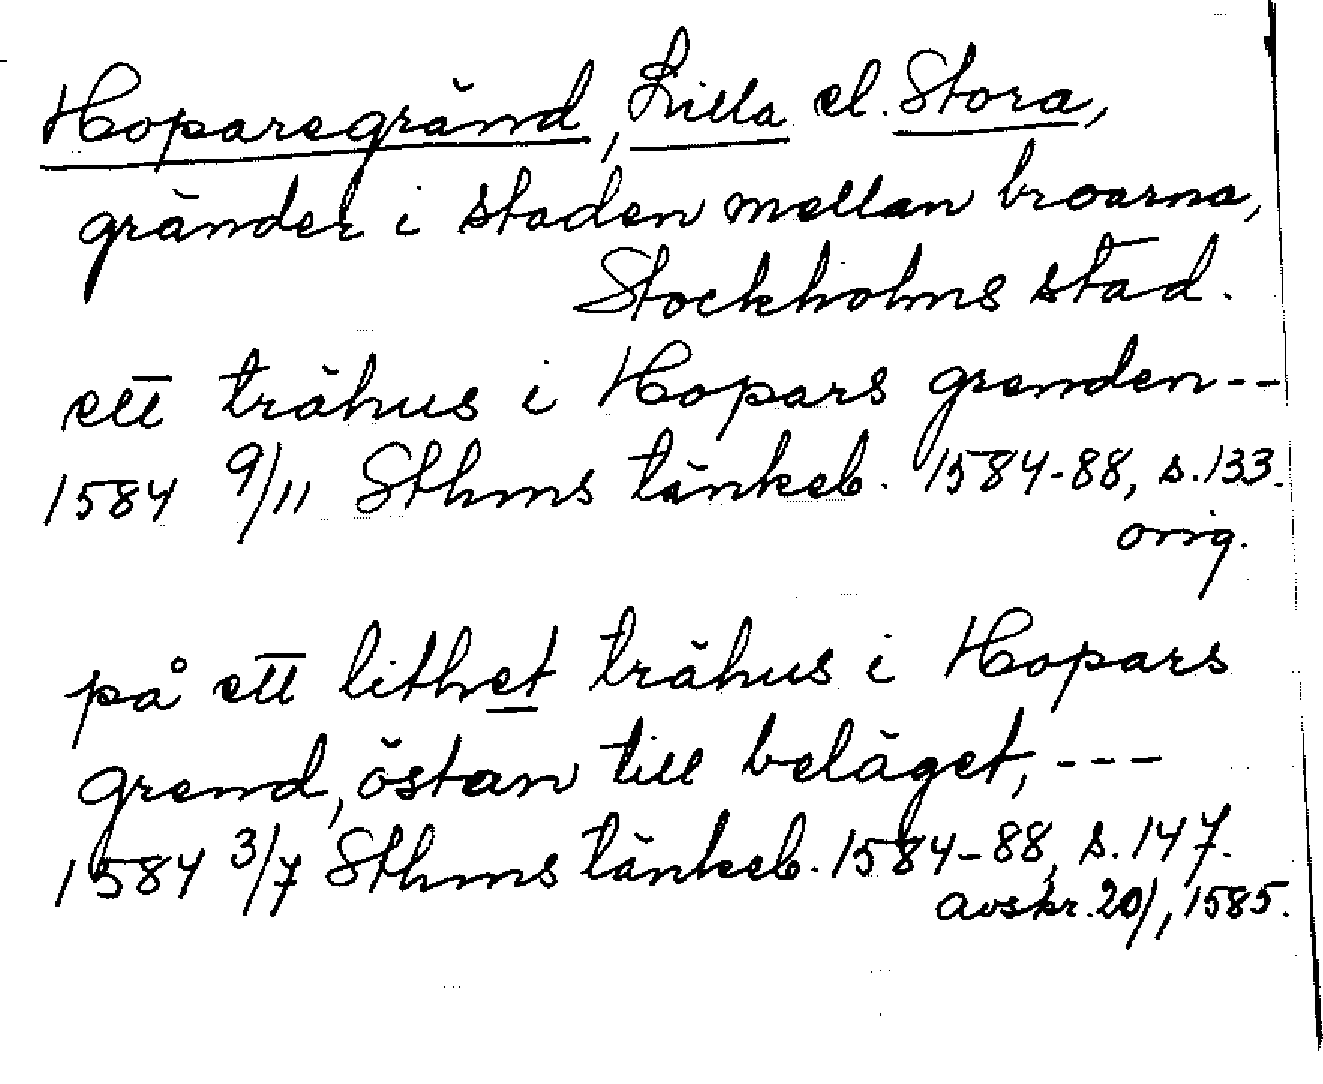 Hoparegränd, Lilla el. Stora,
gränder i staden mellan broarna,
Stockholms stad.
ett trähus i Hopars grenden---
1584 9/11 Sthms tänkeb. 1584-88, s. 133.
orig.
på ett lithet trähus i Hopars
grend, östan till beläget, ---
1584 3/7 Sthms tänkeb. 1584-88, s. 147.
avskr. 20/1 1585.